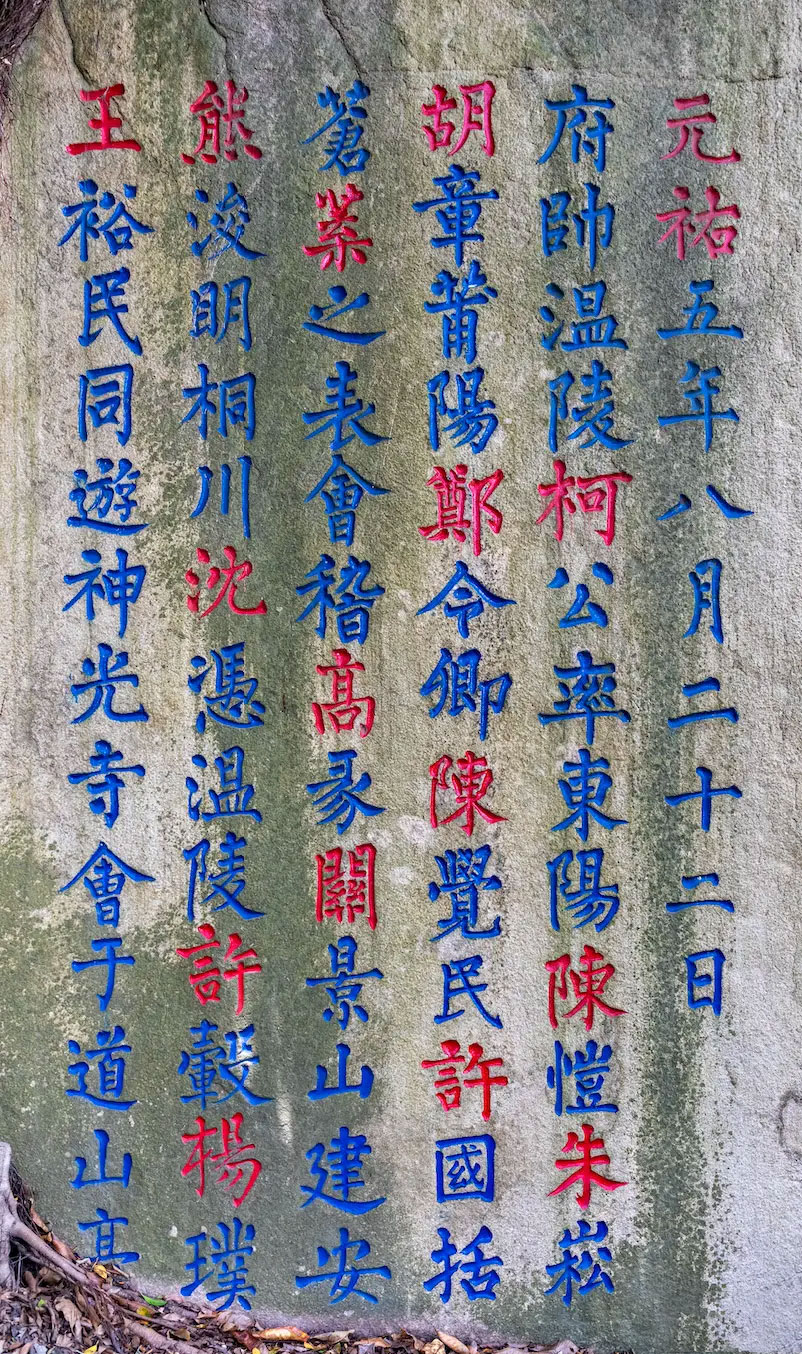 元祐五年八月二十二日
府帥温陵柯公率東陽陳愷朱崧
胡章莆陽鄭令卿陳覺民許國括
蒼葉之表會稽髙彖關景山建安
熊浚明桐川沈憑温陵許轂楊璞
王裕民同遊神光寺會于道山亭